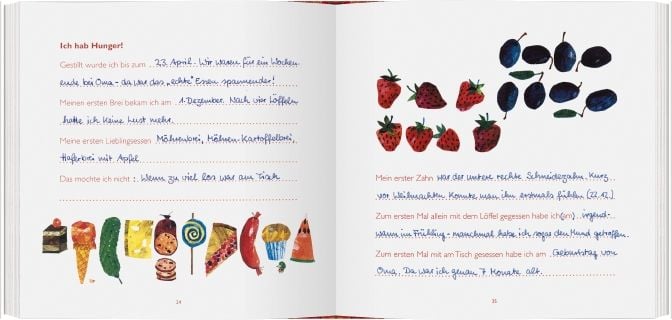 Ich hab Hunger!
Gestillt wurde ich bis zum 23. April. Wir waren für ein Wochen
ende bei Oma - da war das „echte" Essen spannender!
Meinen ersten Brei bekam ich am 1. Dezember. Nach vier Löffeln
hatte ich keine Lust mehr.
Meine ersten Lieblingsessen Möhrenbrei, Möhren-Kartoffelbrei,
Haferbrei mit Apfel
Das mochte ich nicht: Wenn zu viel los war am Tisch
24
Mein erster Zahn war der untere rechte Schneidezahn. Kurz
vor Weihnachten konnte man ihn erstmals fühlen (22.12.)
Zum ersten Mal allein mit dem Löffel gegessen habe ich (am) irgend-
wann im Frühling - manchmal habe ich sogar den Mund getroffen.
Zum ersten Mal mit am Tisch gesessen habe ich am Geburtstag von
Oma. Da war ich genau 7 Monate alt.
25